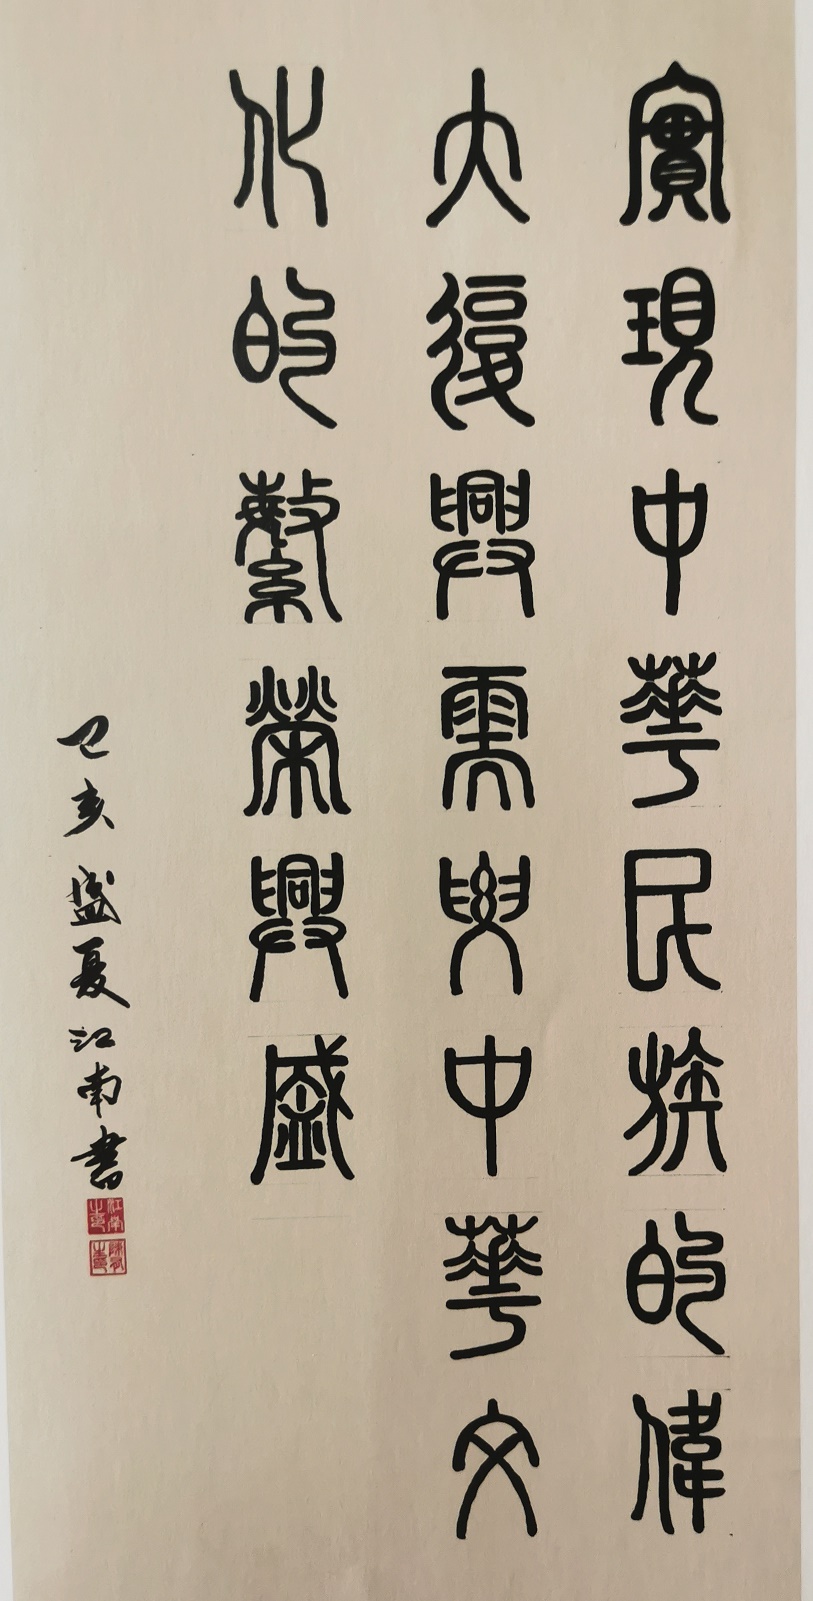 實現中華民族的偉
大復興需要中華文
化的繁榮興盛
己亥盛夏江南書
江南之印